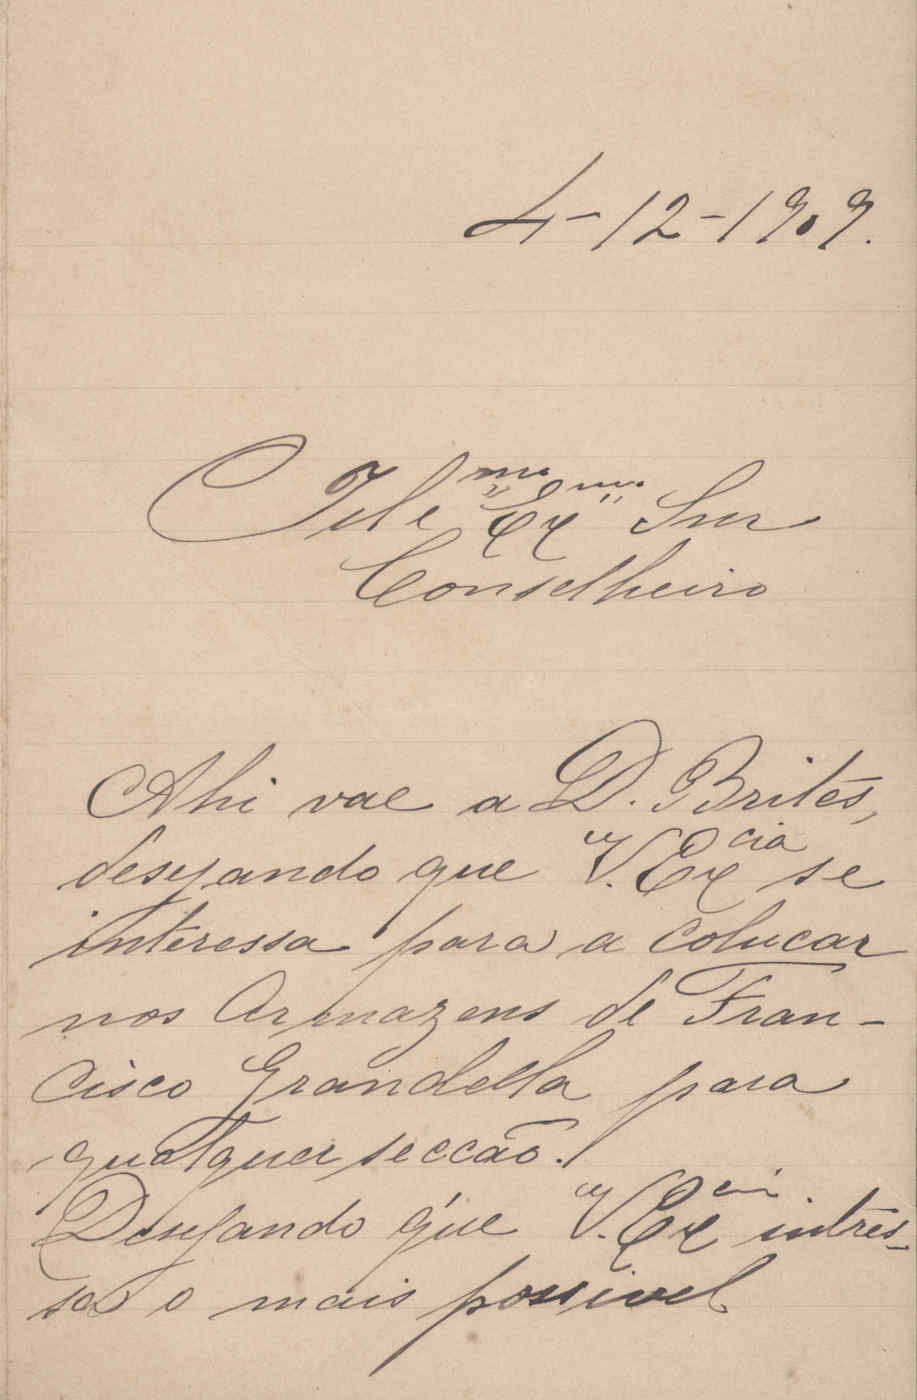 4-12-1909.
Illmo Exmo Snr
Conselheiro
Ahi vae a D. Brites,
desejando que V. Excia se
interessa para a colucar
nos Armazens de Fran-
cisco Grandella para
qualquer secção.
Desejando que V. Excia intres-
sa o mais possivel